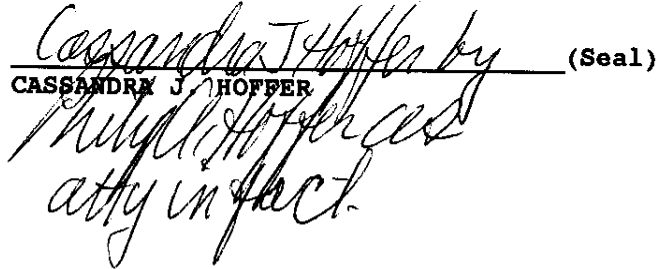 Cassandra J Hoffer by (Seal)
CASSANDRA J. HOFFER
Hoffer as
atty in fact.